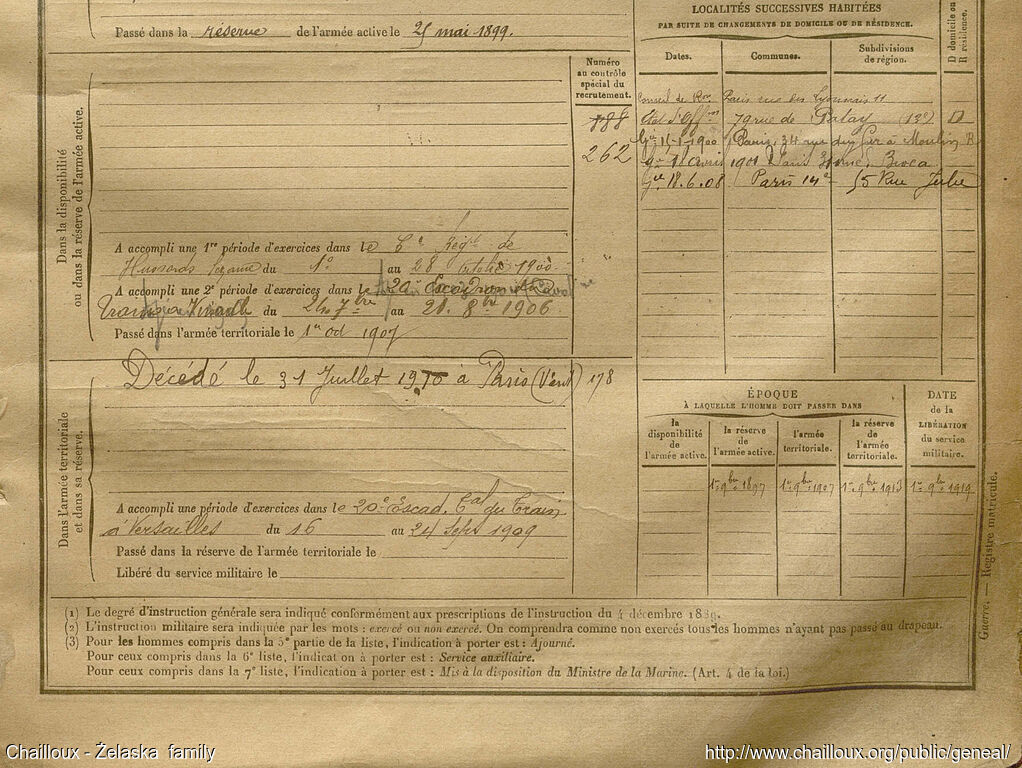 Passé dans la réserve de l'armée active le 25 mai 1899.
Dans la disponibilité
ou dans la réserve de l'armée active.
A accompli une 1re période d'exercices dans le 6e Régt de
Hussards du 1° au 28 octobre 1900.
A accompli une 2e période d'exercices dans le 20e Escadron du
Train à du 24 7bre au 21. 8bre 1906.
Passé dans l'armée territoriale le 1er oct 1907
Numéro
au contrôle
spécial du
recrutement.
188
262
LOCALITÉS SUCCESSIVES HABITÉES
PAR SUITE DE CHANGEMENTS DE DOMICILE OU DE RÉSIDENCE.
Dates. Communes. Subdivisions
de région.
D domicile ou
R résidence.
Conseil de Ron Paris rue des Lyonnais 11
79 rue de Patay (13e) D
15-1-1900 Paris, 34 rue du Fer à Moulin R
avril 1901 Paris 3 rue Broca
18.6.08 Paris 14e 15 Rue Julie
Dans l'armée territoriale
et dans sa réserve.
Décédé le 31 Juillet 1910 à Paris (Vent) 178
A accompli une période d'exercices dans le 20e Escad. Cal du Train
à Versailles du 16 au 24 Sept 1909
Passé dans la réserve de l'armée territoriale le
Libéré du service militaire le
ÉPOQUE
À LAQUELLE L'HOMME DOIT PASSER DANS
la
disponibilité
de
l'armée active.
la réserve
de
l'armée active.
l'armée
territoriale.
la réserve
de
l'armée
territoriale.
DATE
de la
LIBÉRATION
du service
militaire.
1er 9bre 1897 1er 9bre 1907 1er 9bre 1913 1er 9bre 1919
Guerre. — Registre matricule.
(1) Le degré d'instruction générale sera indiqué conformément aux prescriptions de l'instruction du 4 décembre 1889.
(2) L'instruction militaire sera indiquée par les mots : exercé ou non exercé. On comprendra comme non exercés tous les hommes n'ayant pas passé au drapeau.
(3) Pour les hommes compris dans la 5e partie de la liste, l'indication à porter est : Ajourné.
Pour ceux compris dans la 6e liste, l'indication à porter est : Service auxiliaire.
Pour ceux compris dans la 7e liste, l'indication à porter est : Mis à la disposition du Ministre de la Marine. (Art. 4 de la loi.)
Chailloux - Želaska family
http://www.chailloux.org/public/geneal/